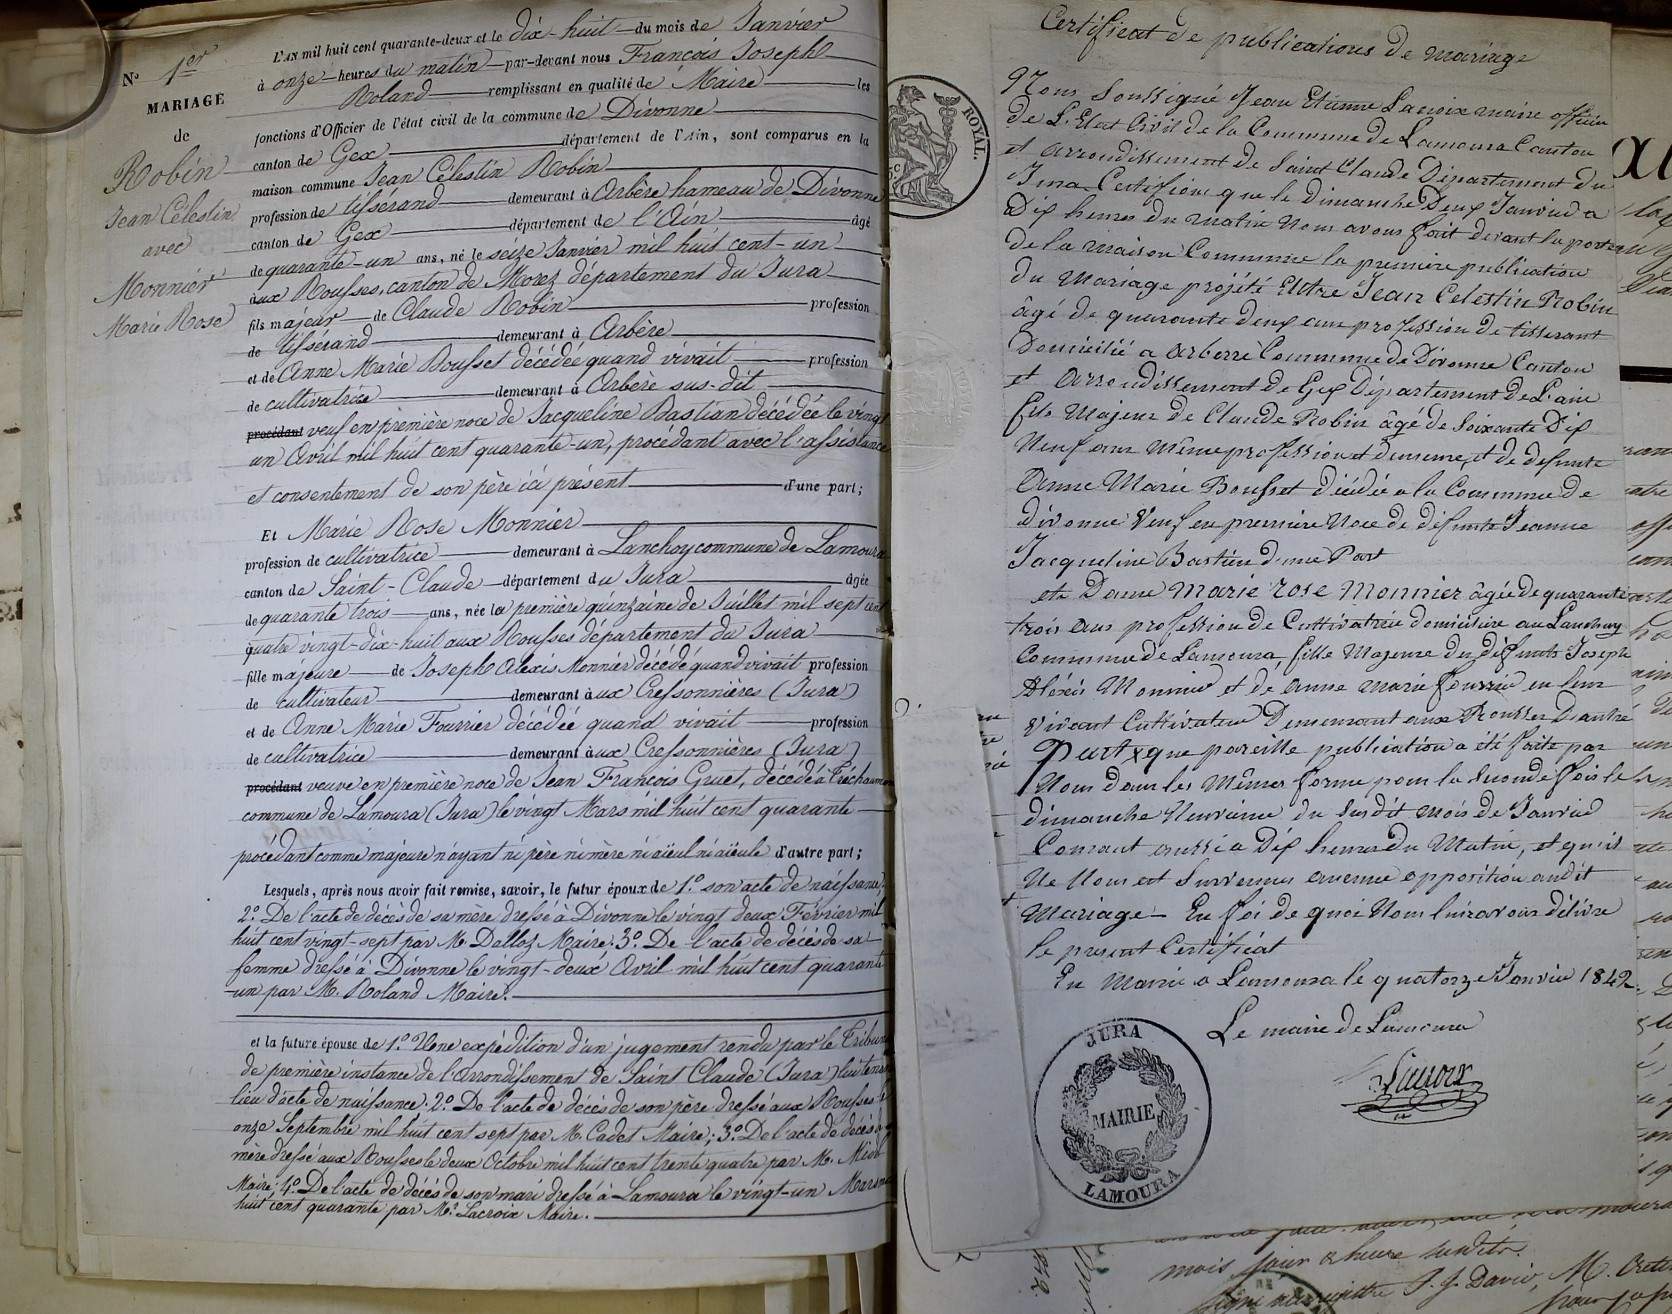 N.º 1er
MARIAGE
de
Robin
Jean Célestin
avec
Monnier
Marie Rose
L'AN mil huit cent quarante-deux et le dix-huit du mois de Janvier
à onze heures du matin par-devant nous François Joseph
Roland remplissant en qualité de Maire les
fonctions d'Officier de l'état civil de la commune de Divonne
canton de Gex département de l'Ain, sont comparus en la
maison commune Jean Célestin Robin
profession de tisserand demeurant à Arbère hameau de Divonne
canton de Gex département de l'Ain âgé
de quarante-un ans, né le seize Janvier mil huit cent-un
aux Rousses, canton de Morez département du Jura
fils majeur de Claude Robin profession
de tisserand demeurant à Arbère
et de Anne Marie Bousset décédée quand vivait profession
de cultivatrice demeurant à Arbère sus-dit
procédant veuf en première noce de Jacqueline Bastian décédée le vingt
un Avril mil huit cent quarante-un, procédant avec l'assistance
et consentement de son père ici présent d'une part;
Et Marie Rose Monnier
profession de cultivatrice demeurant à Lanchoy commune de Lamoura
canton de Saint-Claude département du Jura âgée
de quarante trois ans, née la première quinzaine de Juillet mil sept cent
quatre vingt-dix-huit aux Rousses département du Jura
fille majeure de Joseph Alexis Monnier décédé quand vivait profession
de cultivateur demeurant aux Cressonnières (Jura)
et de Anne Marie Fournier décédée quand vivait profession
de cultivatrice demeurant aux Cressonnières (Jura)
procédant veuve en première noce de Jean François Gruet, décédé à Tréchaumon
commune de Lamoura (Jura) le vingt Mars mil huit cent quarante
procédant comme majeure n'ayant ni père ni mère ni aïeul ni aïeule d'autre part;
Lesquels, après nous avoir fait remise, savoir, le futur époux de 1.º son acte de naissance;
2.º De l'acte de décès de sa mère dressé à Divonne le vingt deux Février mil
huit cent vingt-sept par M. Dalloz Maire. 3.º De l'acte de décès de sa
femme dressé à Divonne le vingt-deux Avril mil huit cent quarante
-un par M. Roland Maire.
et la future épouse de 1.º Une expédition d'un jugement rendu par le Tribun
de première instance de l'arrondissement de Saint Claude (Jura) lui tenan
lieu d'acte de naissance. 2.º De l'acte de décès de son père dressé aux Rousses le
onze Septembre mil huit cent sept par M. Cadet Maire; 3.º De l'acte de décès de
mère dressé aux Rousses le deux Octobre mil huit cent trente quatre par M.
Maire. 4.º De l'acte de décès de son mari dressé à Lamoura le vingt-un Mars
huit cent quarante par M. Lacroix Maire.
ROYAL.
Certificat de publications de mariage
Nous soussigné Jean Etienne Lacroix maire officier
de L'Etat Civil de la Commune de Lamoura Canton
et arrondissement de Saint Claude Département du
Jura Certifions que le dimanche Deux Janvier a
Dix heures du matin Nous avons fait devant la porte
de la maison Commune la première publication
du Mariage projété Entre Jean Celestin Robin
âgé de quarante deux ans profession de tisserant
Domicilié a arberre Commune de Divonne Canton
et arrondissement de Gex Département de L'ain
fils Majeur de Claude Robin âgé de Soixante Dix
Neuf ans même profession et demeure, et de defunte
Anne Marie Bousset décédée a la Commune de
divonne Veuf en première Noce de défunte Jeanne
Jacqueline Bastien d'une Part
et Dame Marie Rose Monnier âgée de quarante
trois ans profession de Cultivatrice domiciliée au Lanchoy
Commune de Lamoura, fille Majeure du défunts Joseph
Aléxis Monnier et de anne marie fournier en leur
vivant Cultivateur Demeurant aux Rousses D'autre
Part que pareille publication a été faite par
Nous dans les Mêmes forme pour la seconde fois le
dimanche Neuvième du susdit mois de Janvier
Courant aussi a Dix heures du Matin, et qu'il
Ne Nous est Survenus aucune opposition audit
Mariage En foi de quoi Nous lui avons délivré
le présent Certificat
En Mairie a Lamoura le quatorze Janvier 1842.
Le maire de Lamoura
Lacroix
JURA
MAIRIE
LAMOURA
mois jour & heure susdits.